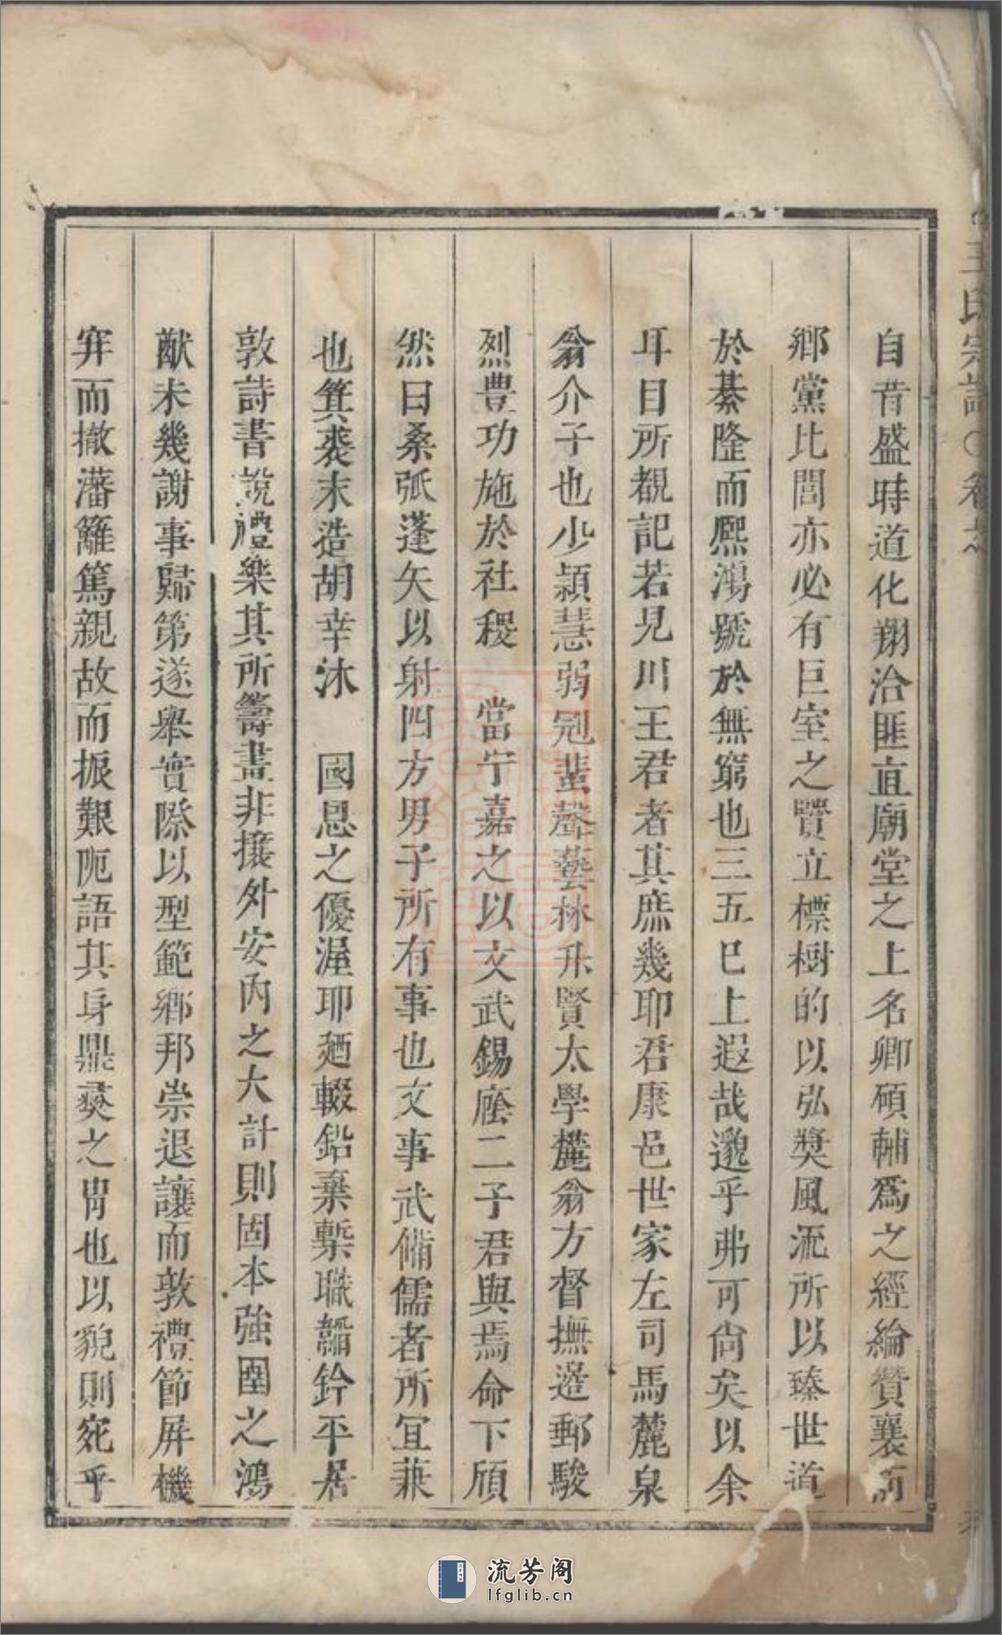 自昔盛時道化翔洽匪直廟堂之上名卿碩輔爲之經綸贊襄而
鄉黨比閭亦必有巨室之賢立標樹的以弘奬風流所以臻世道
於綦隆而熈鴻號於無窮也三五巳上遐哉邈乎弗可尙矣以余
耳目所覩記若見川王君者其庶幾耶君康邑世家左司馬麓泉
翁介子也少頴慧弱冠蜚聲藝林升賢太學麓翁方督撫邉郵駿
烈豊功施於社稷 當宁嘉之以文武錫廕二子君與焉命下頎
然曰桑弧蓬矢以射四方男子所有事也文事武備儒者所宜蒹
也箕裘末造胡幸沐 國恩之優渥耶廼輟鉛棄槧職韜鈐平居
敦詩書說禮樂其所籌畫非攘外安內之大計則固本強圉之鴻
猷未幾謝事歸第遂舉實際以型範鄉邦崇退讓而敦禮節屏機
穽而撤藩籬篤親故而振艱阨語其身鼎彛之胄也以貌則宛乎
王氏宗譜 卷之
流芳阁
lfglib.cn